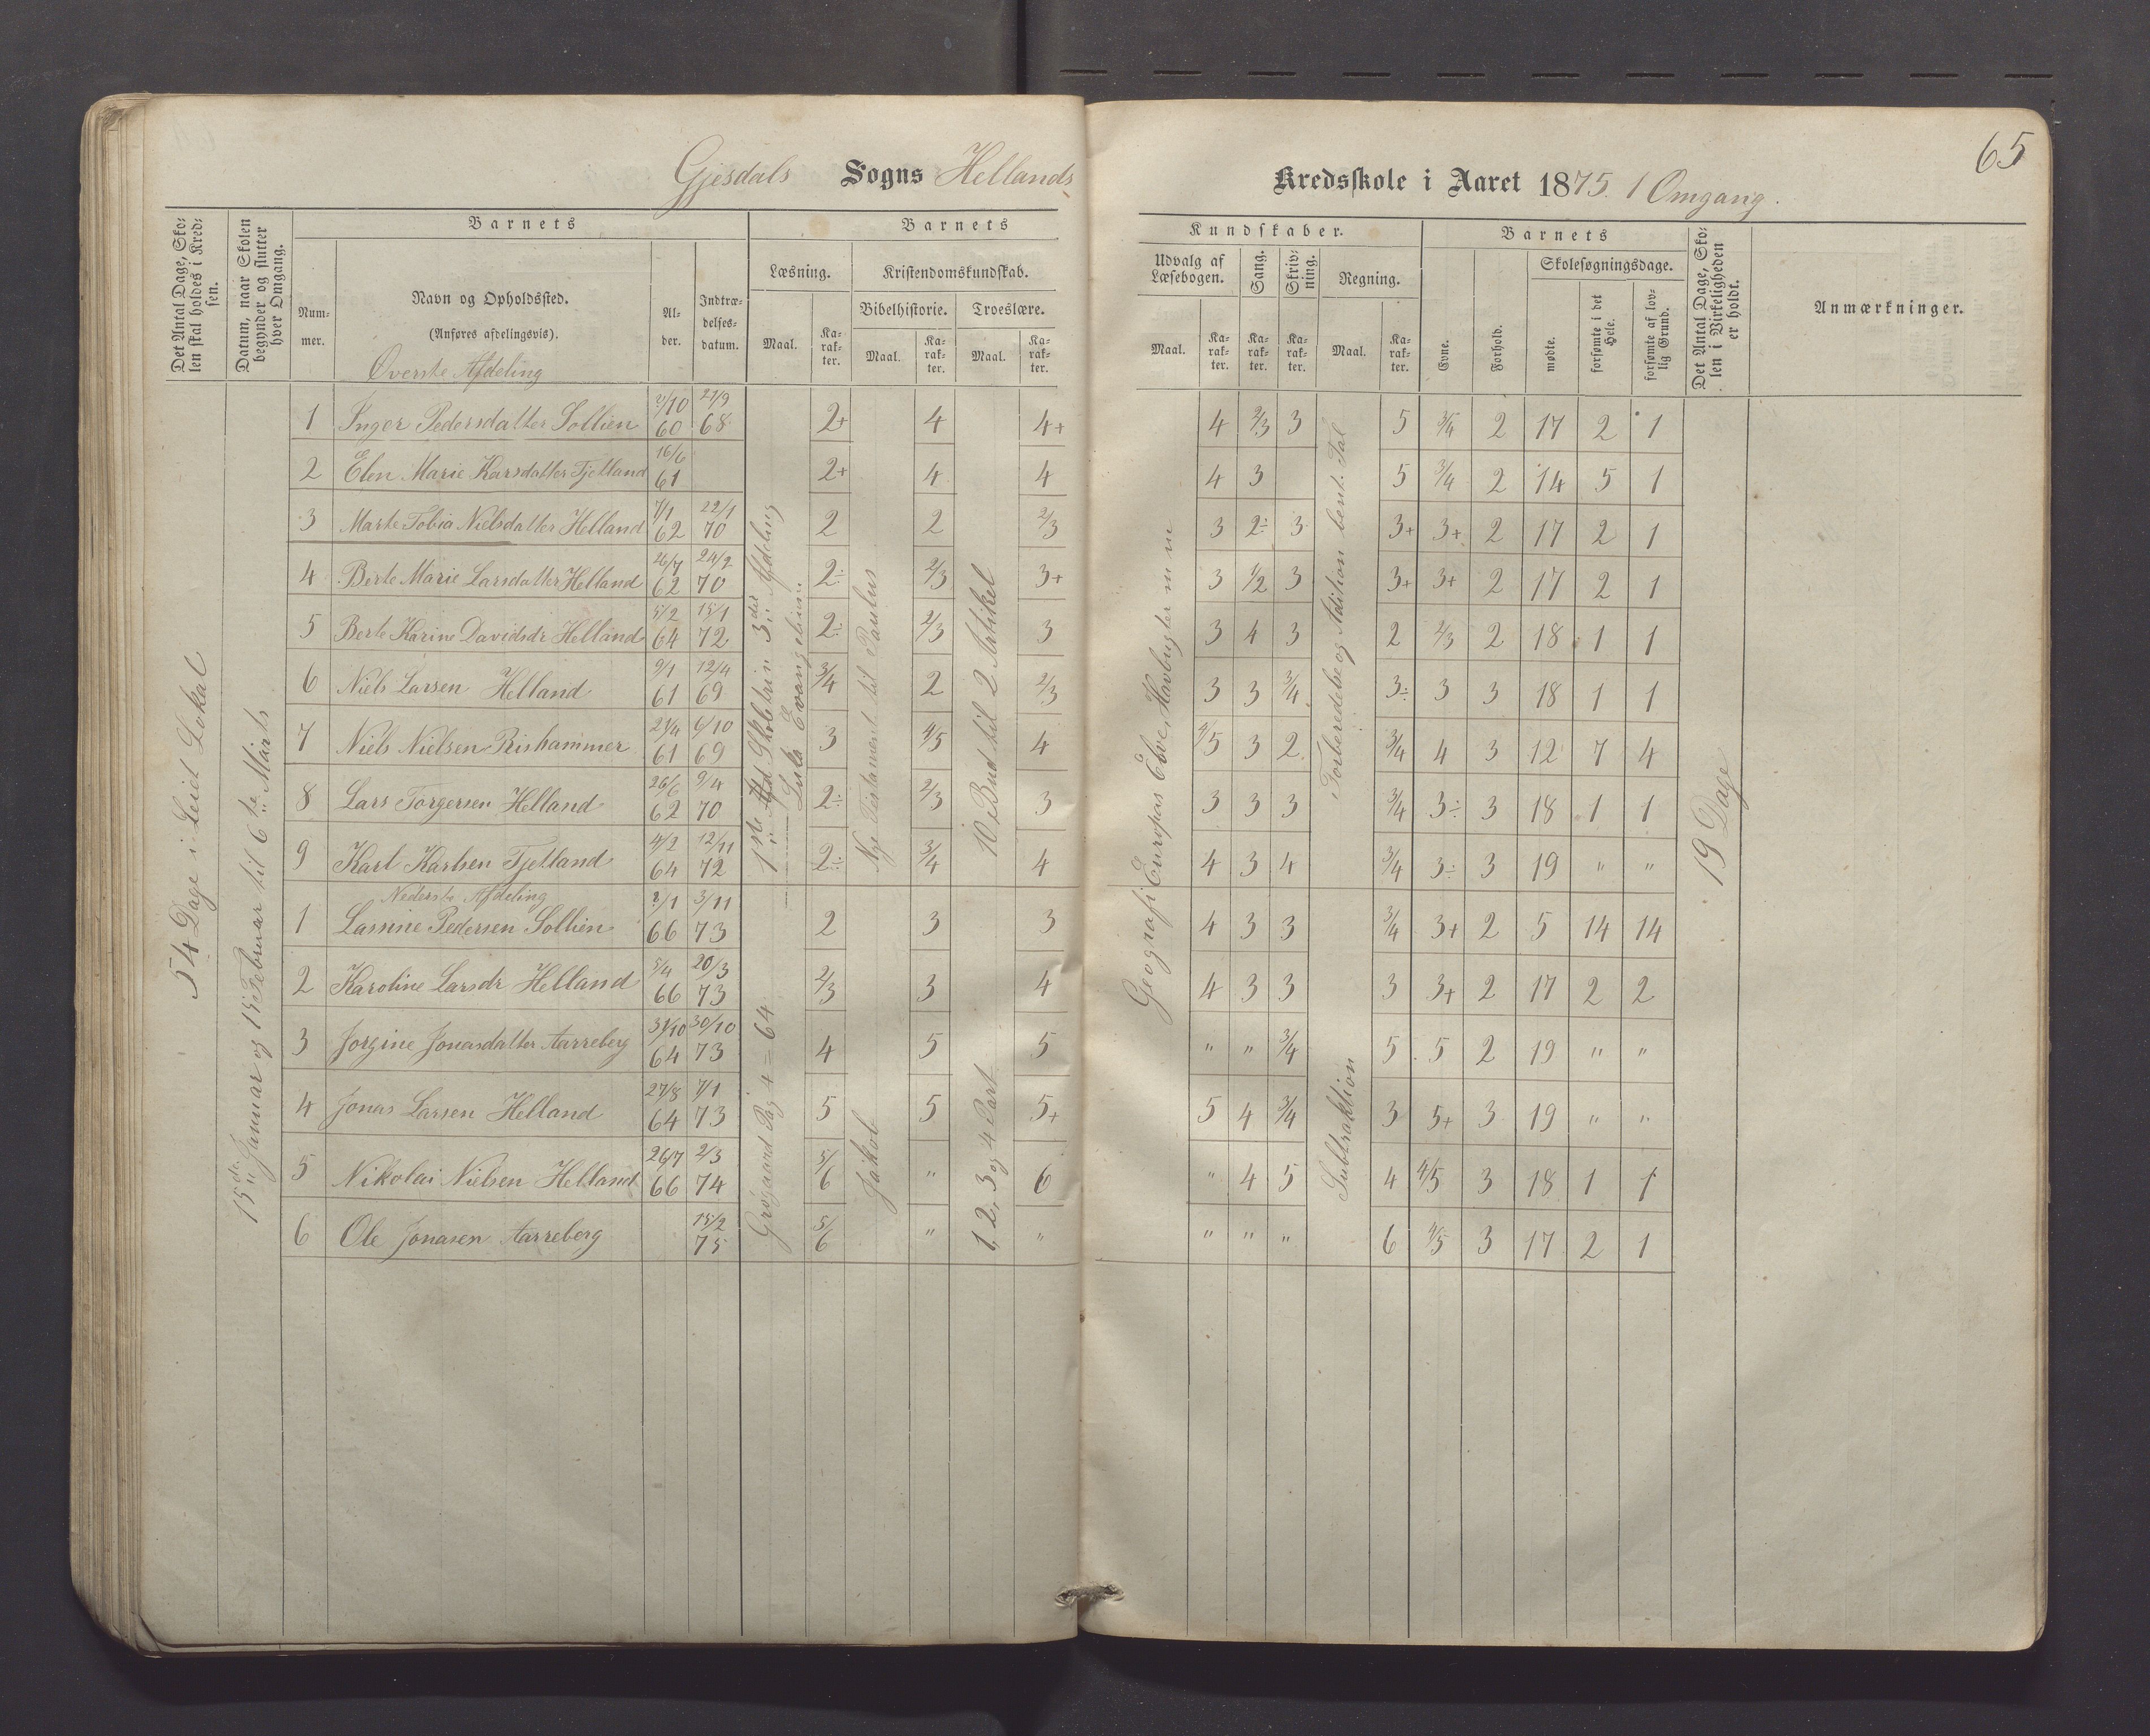 65
Gjesdals Sogns Hellands Kredsskole i Aaret 1875. 1 Omgang.
Det Antal Dage, Skolen skal holdes i Kredsen.
Datum, naar Skolen begynder og slutter hver Omgang.
Barnets
Nummer.
Navn og Opholdssted.
(Anføres afdelingsvis).
Alder.
Indtrædelsesdatum.
Barnets Kundskaber.
Læsning.
Maal. Karakter.
Kristendomskundskab.
Bibelhistorie. Troeslære.
Maal. Karakter. Maal. Karakter.
Udvalg af Læsebogen.
Maal. Karakter.
Sang.
Karakter.
Skrivning.
Karakter.
Regning.
Maal. Karakter.
Barnets
Evne.
Forhold.
Skolesøgningsdage.
mødte.
forsømte i det Hele.
forsømte af lovlig Grund.
Det Antal Dage, Skolen i Virkeligheden er holdt.
Anmærkninger.
54 Dage i Leiet Lokal
15de Januar og 15 Februar til 6te Marts
Øverste Afdeling
1 Inger Pedersdatter Sollien 2/10 60 27/9 68 2+ 4 4+ 4 2/3 3 5 3/4 2 17 2 1
2 Elen Marie Karsdatter Fjelland 16/6 61 2+ 4 4 4 3 5 3/4 2 14 5 1
3 Marte Tobia Nielsdatter Helland 7/1 62 22/1 70 2 2 2/3 3 2÷ 3 3+ 3+ 2 17 2 1
4 Berte Marie Larsdatter Helland 26/7 62 24/2 70 2÷ 2/3 3+ 3 1/2 3 3+ 3+ 2 17 2 1
5 Berte Karine Davidsdr Helland 5/2 64 15/1 72 2÷ 2/3 3 3 4 3 2 2/3 2 18 1 1
6 Niels Larsen Helland 9/1 61 12/4 69 3/4 2 2/3 3 3 3/4 3÷ 3 3 18 1 1
7 Niels Nielsen Rishammer 21/4 61 6/10 69 3 4/5 4 4/5 3 2 3/4 4 3 12 7 4
8 Lars Torgersen Helland 26/6 62 9/4 70 2÷ 2/3 3 3 3 3 3/4 3÷ 3 18 1 1
9 Karl Karlsen Fjelland 4/2 64 12/11 72 2÷ 3/4 4 4 3 4 3/4 3÷ 3 19 " "
Nederste Afdeling
1 Lassine Pedersen Sollien 2/1 66 3/11 73 2 3 3 4 3 3 3/4 3+ 2 5 14 14
2 Karoline Larsdr Helland 5/4 66 20/3 73 2/3 3 4 4 3 3 3 3+ 2 17 2 2
3 Jorgine Jonasdatter Aarreberg 31/10 64 30/10 73 4 5 5 " " 3/4 5 5 2 19 " "
4 Jonas Larsen Helland 27/8 64 7/1 73 5 5 5+ 5 4 3/4 3 5+ 3 19 " "
5 Nikolai Nielsen Helland 26/7 66 2/3 74 5/6 " 6 " 4 5 4 4/5 3 18 1 1
6 Ole Jonasen Aarreberg 15/2 75 5/6 " " " " " 6 4/5 3 17 2 1
1ste Afd Skolen 3die Afdeling
Luka Evangelium.
Grøgaard Pag 4 = 64
Nye Testament til Paulus
Jakob
10 Bud til 2 Artikel
1, 2, 3 og 4 Part
Geografi Europas Elve, Havbugter m m
Forberedebe og Adition bent. Tal
Subtraktion
19 Dage